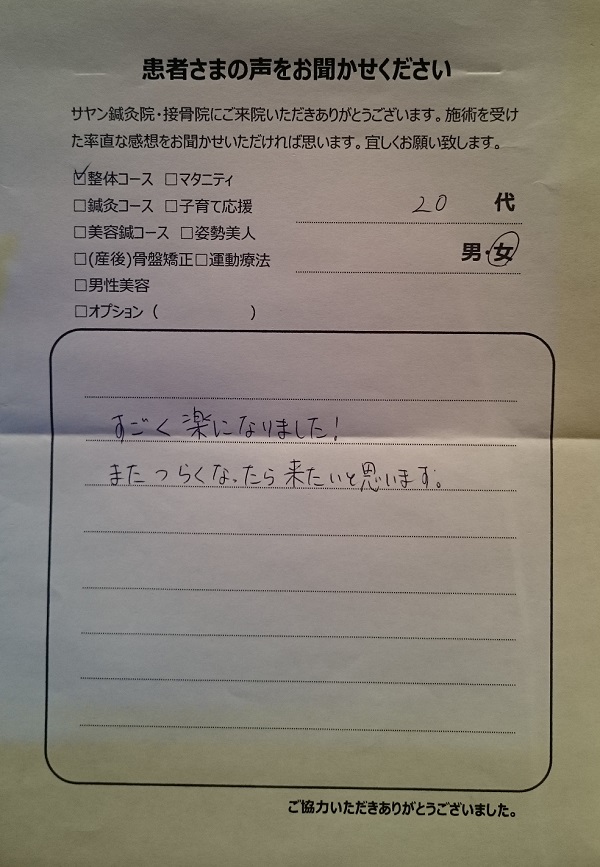 患者さまの声をお聞かせください
サヤン鍼灸院・接骨院にご来院いただきありがとうございます。施術を受け
た率直な感想をお聞かせいただければ思います。宜しくお願い致します。
☑整体コース □マタニティ
□鍼灸コース □子育て応援
20 代
□美容鍼コース □姿勢美人
男・女
□(産後)骨盤矯正□運動療法
□男性美容
□オプション ( )
すごく楽になりました!
またつらくなったら来たいと思います。
ご協力いただきありがとうございました。